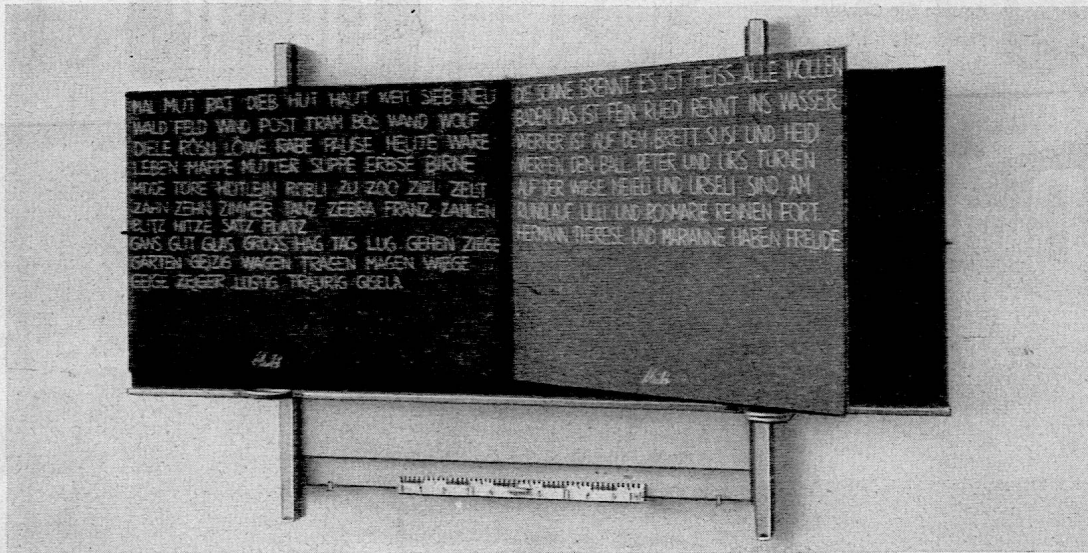 MAL MUT RAT DIEB HUT HAUT WEIT SIEB NEU
WALD FELD WIND POST TRAM BÖS WAND WOLF
DIELE RÖSLI LÖWE RABE PAUSE HEUTE WARE
LEBEN MAPPE MUTTER SUPPE ERBSE BIRNE
TORE HÖTLEIN RÖBLI ZU ZOO ZIEL ZELT
ZAHN ZEHN ZIMMER TANZ ZEBRA FRANZ ZAHLEN
BLITZ HITZE SATZ PLATZ
GANS GUT GLAS GROSS HAG TAG LUG GEHEN ZIEGE
GARTEN GEIZIG WAGEN TRAGEN MAGEN WIEGE
GEIGE ZEIGER LUSTIG TRAURIG GISELA
DIE SONNE BRENNT ES IST HEISS ALLE WOLLEN
BADEN DAS IST FEIN RUEDI RENNT INS WASSER
WERNER IST AUF DEM BRETT SUSI UND HEIDI
WERFEN DEN BALL PETER UND URS TURNEN
AUF DER WIESE MEIELI UND URSELI SIND AM
RUNDLAUF LILLI UND ROSMARIE RENNEN FORT
HERMANN THERESE UND MARIANNE HABEN FREUDE